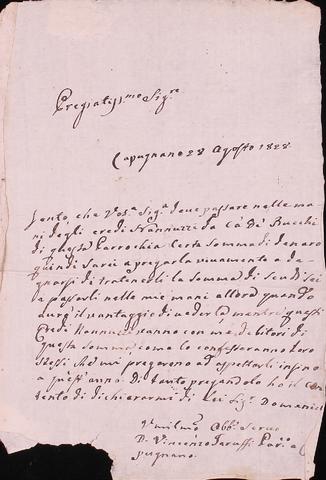 Pregiatissmo Sigre
Capugnano 28 Agosto 1828
Sento, che Vosa Siga deve passare nelle ma
ni degli eredi Nannuzzi da Ca de Bucchi
di questa Parrochia certa somma di denaro
quindi sarei a pregarla vivamente a de
gnarsi di trattenerli la somma di scudi sei
e passarli nelle mie mani allora quando
avrò il vantaggio di vederla mentre questi
Eredi Nannuzzi sanno con me debitori di
questa somma come lo confessaranno loro
stessi che mi pregarono ad aspettarli infino
a quest'anno. Di tanto pregandola ho il con
tento di dichiararmi di Lei Sigr Domenico
Umilmo Obbo Servo
D. Vincenzo Taruffi Paro a Ca
pugnano.